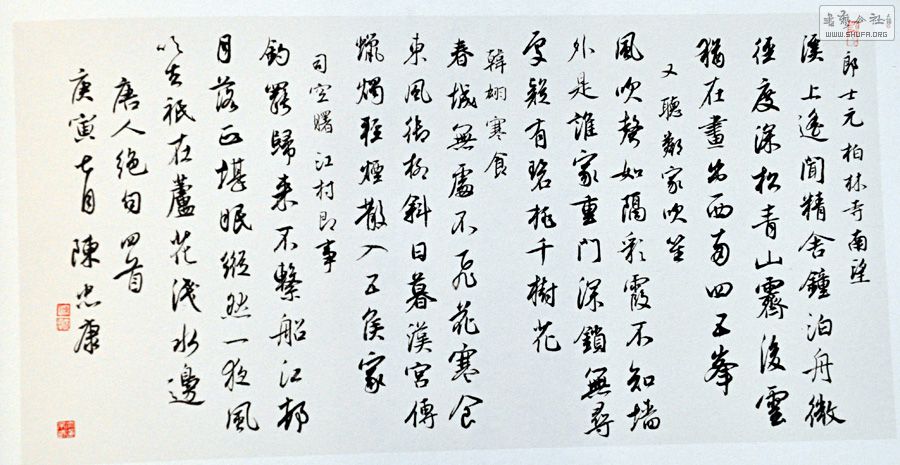 郎士元柏林寺南望
溪上遙聞精舍鐘泊舟微
徑度深松青山霽後雲
猶在畫出西南四五峯
又聽鄰家吹笙
風吹聲如隔彩霞不知墙
外是誰家重門深鎖無尋
處疑有碧桃千樹花
韓翃寒食
春城無處不飛花寒食
東風御柳斜日暮漢宮傳
蠟燭輕煙散入五侯家
司空曙江村即事
釣罷歸來不繫船江邨
月落正堪眠縱然一夜風
吹去祇在蘆花淺水邊
唐人絕句四首
庚寅七月陳忠康
WWW.SHUFA.ORG